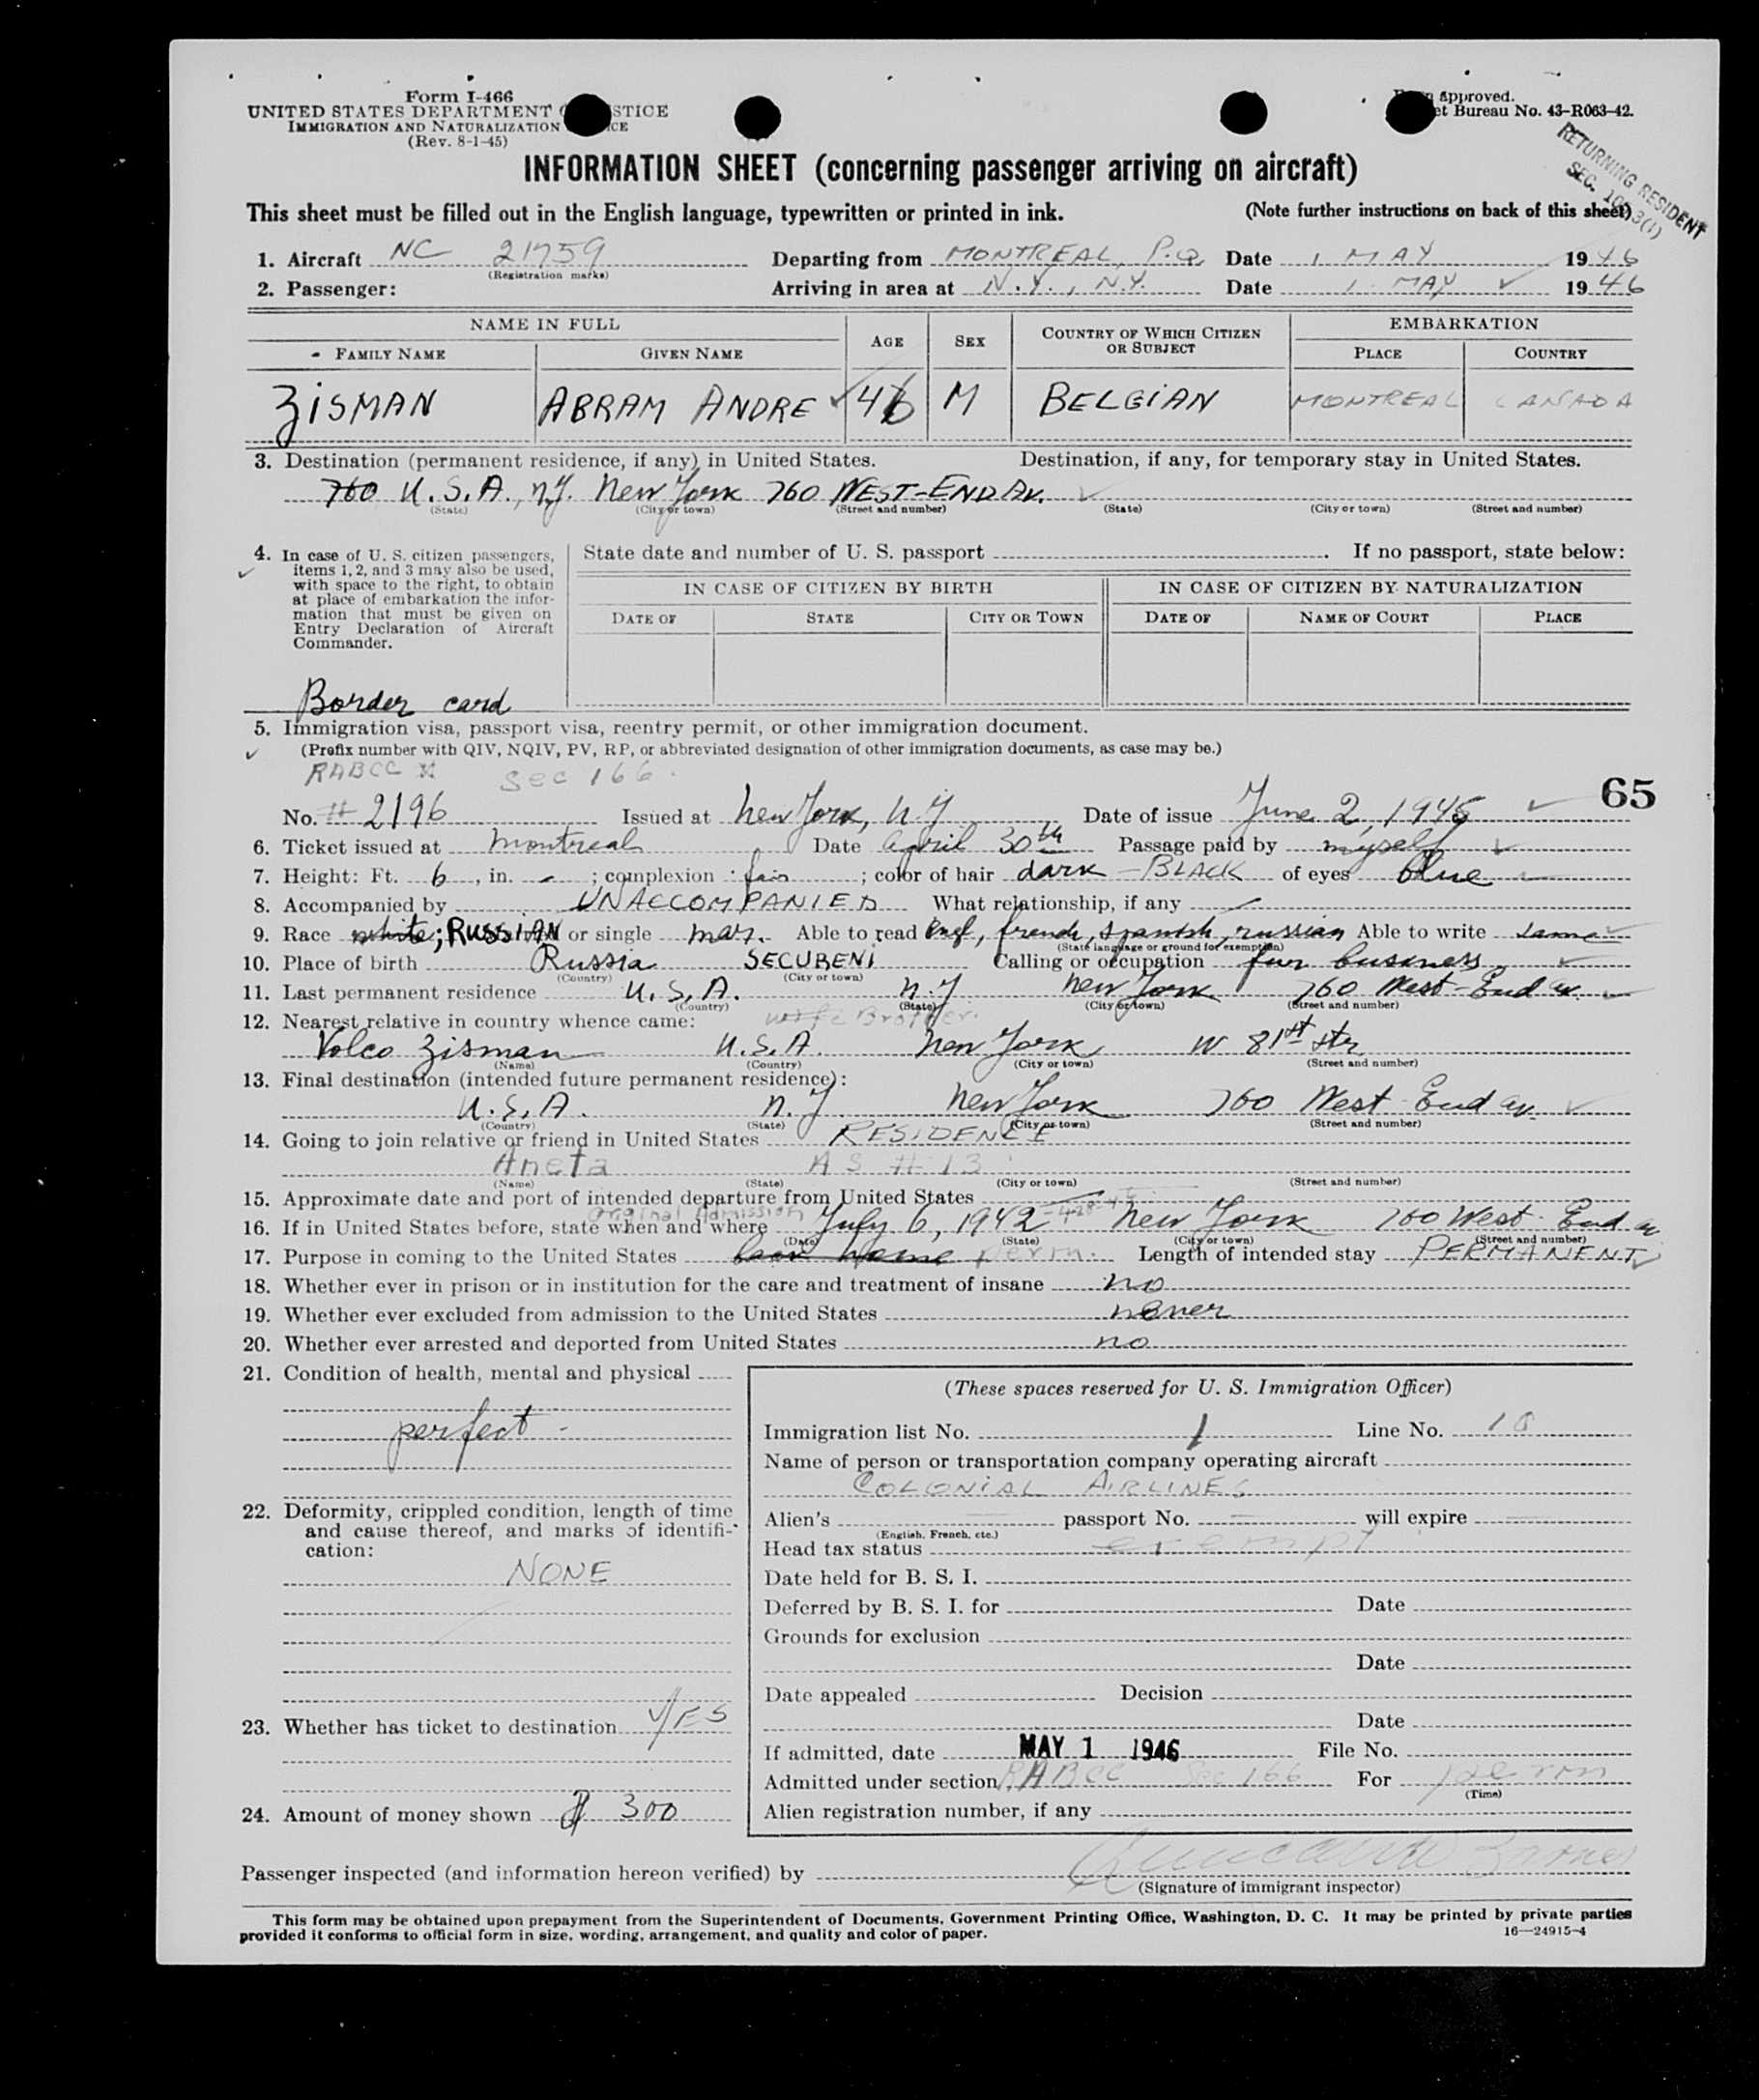 Form I-466
UNITED STATES DEPARTMENT STICE
IMMIGRATION AND NATURALIZATION ICE
(Rev. 8-1-45)
approved.
et Bureau No. 43-R063-42.
RETURNING RESIDENT
SEC.
INFORMATION SHEET (concerning passenger arriving on aircraft)
This sheet must be filled out in the English language, typewritten or printed in ink. (Note further instructions on back of this sheet)
1. Aircraft NC 21759 Departing from MONTREAL, P.Q. Date 1 MAY 1946
(Registration marks)
2. Passenger: Arriving in area at N.Y., N.Y. Date 1 MAY 1946
NAME IN FULL AGE SEX COUNTRY OF WHICH CITIZEN OR SUBJECT EMBARKATION
FAMILY NAME GIVEN NAME PLACE COUNTRY
ZISMAN ABRAM ANDRE 46 M BELGIAN MONTREAL CANADA
3. Destination (permanent residence, if any) in United States. Destination, if any, for temporary stay in United States.
760 U.S.A., N.Y. New York 760 WEST-END AV.
(State) (City or town) (Street and number) (State) (City or town) (Street and number)
4. In case of U. S. citizen passengers, items 1, 2, and 3 may also be used, with space to the right, to obtain at place of embarkation the information that must be given on Entry Declaration of Aircraft Commander.
State date and number of U. S. passport . If no passport, state below:
IN CASE OF CITIZEN BY BIRTH IN CASE OF CITIZEN BY NATURALIZATION
DATE OF STATE CITY OR TOWN DATE OF NAME OF COURT PLACE
Border card
5. Immigration visa, passport visa, reentry permit, or other immigration document.
(Prefix number with QIV, NQIV, PV, RP, or abbreviated designation of other immigration documents, as case may be.)
RABCC Sec 166
65
No. # 2196 Issued at New York, N.Y Date of issue June 2, 1945
6. Ticket issued at Montreal Date april 30th Passage paid by myself
7. Height: Ft. 6, in. - ; complexion fair ; color of hair dark - BLACK of eyes blue
8. Accompanied by UNACCOMPANIED What relationship, if any
9. Race white; RUSSIAN or single mar. Able to read Engl, french, spanish, russian Able to write same
(State language or ground for exemption)
10. Place of birth Russia SECURENI Calling or occupation fur business
(Country) (City or town)
11. Last permanent residence U.S.A. N.Y New York 760 West-End av.
(Country) (State) (City or town) (Street and number)
12. Nearest relative in country whence came: wife Brother.
Volco Zisman U.S.A. New York W 81st str
(Name) (Country) (City or town) (Street and number)
13. Final destination (intended future permanent residence):
U.S.A. N.Y. New York 760 West End av.
(Country) (State) (City or town) (Street and number)
14. Going to join relative or friend in United States RESIDENCE
Aneta AS # 13
(Name) (State) (City or town) (Street and number)
15. Approximate date and port of intended departure from United States
original Admission
16. If in United States before, state when and where July 6, 1942 New York 760 West End av
(Date) (State) (City or town) (Street and number)
17. Purpose in coming to the United States back home perm. Length of intended stay PERMANENT
18. Whether ever in prison or in institution for the care and treatment of insane no
19. Whether ever excluded from admission to the United States never
20. Whether ever arrested and deported from United States no
21. Condition of health, mental and physical
perfect -
22. Deformity, crippled condition, length of time and cause thereof, and marks of identification:
NONE
23. Whether has ticket to destination YES
24. Amount of money shown $ 300
(These spaces reserved for U. S. Immigration Officer)
Immigration list No. 1 Line No. 10
Name of person or transportation company operating aircraft
COLONIAL AIRLINES
Alien's passport No. will expire
(English, French, etc.)
Head tax status exempt
Date held for B. S. I.
Deferred by B. S. I. for Date
Grounds for exclusion
Date
Date appealed Decision
Date
If admitted, date MAY 1 1946 File No.
Admitted under section RABCC Sec 166 For perm
(Time)
Alien registration number, if any
Passenger inspected (and information hereon verified) by
(Signature of immigrant inspector)
This form may be obtained upon prepayment from the Superintendent of Documents, Government Printing Office, Washington, D. C. It may be printed by private parties
provided it conforms to official form in size, wording, arrangement, and quality and color of paper. 16—24915-4